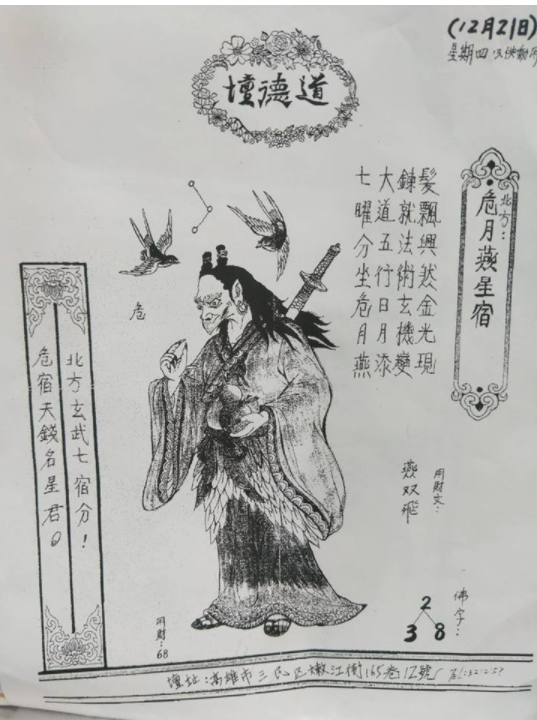 (12月21日)
星期四
道德壇
北方:
危月燕星宿
髮飄興然金光現
鍊就法術玄機變
大道五行日月添
七曜分坐危月燕
危
北方玄武七宿分!
危宿天錢名星君。
用財文:
燕双飛
佛字:
2
3 8
用財:68
壇址:高雄市三民區嫩江街165巷12號